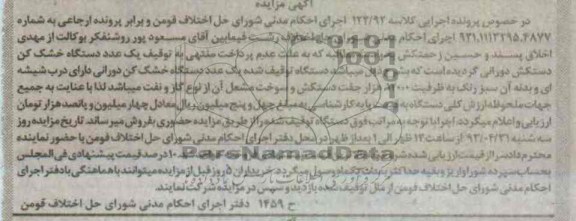 آگهی مزایده
در خصوص پرونده اجرایی کلاسه ۱۲۲/۹۲ اجرای احکام مدنی شورای حل اختلاف فومن و برابر پرونده ارجاعی به شماره
۹۳۱۱۱۳۲۹۵۰۴۸۷۷ اجرای احکام حل اختلاف رشت فیمابین آقای مسعود پور روشنفکر بوکالت از مهدی
اخلاق پسند و حسین زحمتکش که به علت عدم پرداخت منتهی به توقیف یک عدد دستگاه خشک کن
دستکش دورانی گردیده است که دستگاه توقیف شده یک عدد دستگاه خشک کن دورانی دارای درب شیشه
ای و بدنه آن سبز رنگ به ظرفیت هزار جفت دستکش و سوخت مشعل آن از نوع گاز و نفت میباشد لذا با عنایت به جمیع
جهات ملحوظه ارزش کلی دستگاه کارشناس به مبلغ چهل و پنج میلیون ریال معادل چهار میلیون و پانصد هزار تومان
ارزیابی و اعلام میگردد اجرا با توجه به مراتب فوق دستگاه توقیف شده را از طریق مزایده حضوری بفروش میرساند. تاریخ مزایده روز
سه شنبه ۹۳/۰۴/۳۱ از ساعت ۱۲ ظهر الی ۱ بعداز ظهر در محل دفتر اجرای احکام مدنی شورای حل اختلاف فومن با حضور نماینده
محترم دادسرا از قیمت ارزیابی شده ۱۰ درصد قیمت پیشنهادی فی المجلس
بحساب سپرده شورا واریز و بقیه حداکثر وصول میگردد خریداران ۵ روز قبل از مزایده میتوانند با هماهنگی با دفتر اجرای
احکام مدنی شورای حل اختلاف فومن از مال توقیف شده بازدید و سپس در مزایده شرکت نمایند.
ح ۱۴۵۹ دفتر اجرای احکام مدنی شورای حل اختلاف فومن
ParsNamadData